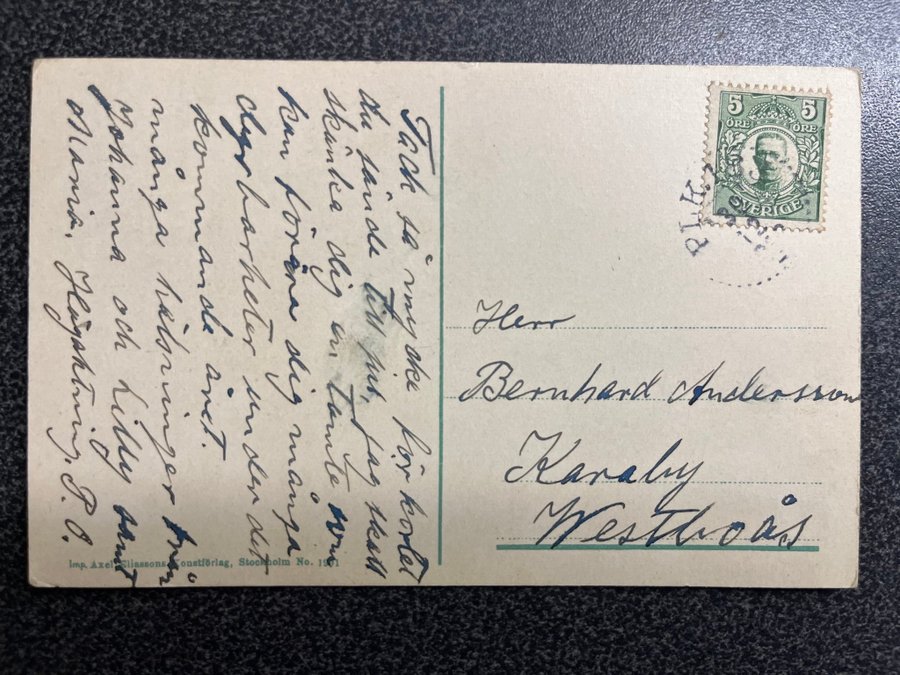 Tack så mycke för kortet
du sände till jul, jag skall
skänka dig en tomte som
kan förära dig många
dyrbarheter under det
kommande året.
många hälsningar från
Johanna och Lilly samt
Maria. Högaktning P. J.
Imp. Axel Eliassons Konstförlag, Stockholm No. 1911
5 5
ÖRE ÖRE
SVERIGE
PLK.
Herr
Bernhard Andersson
Karaby
Westboås